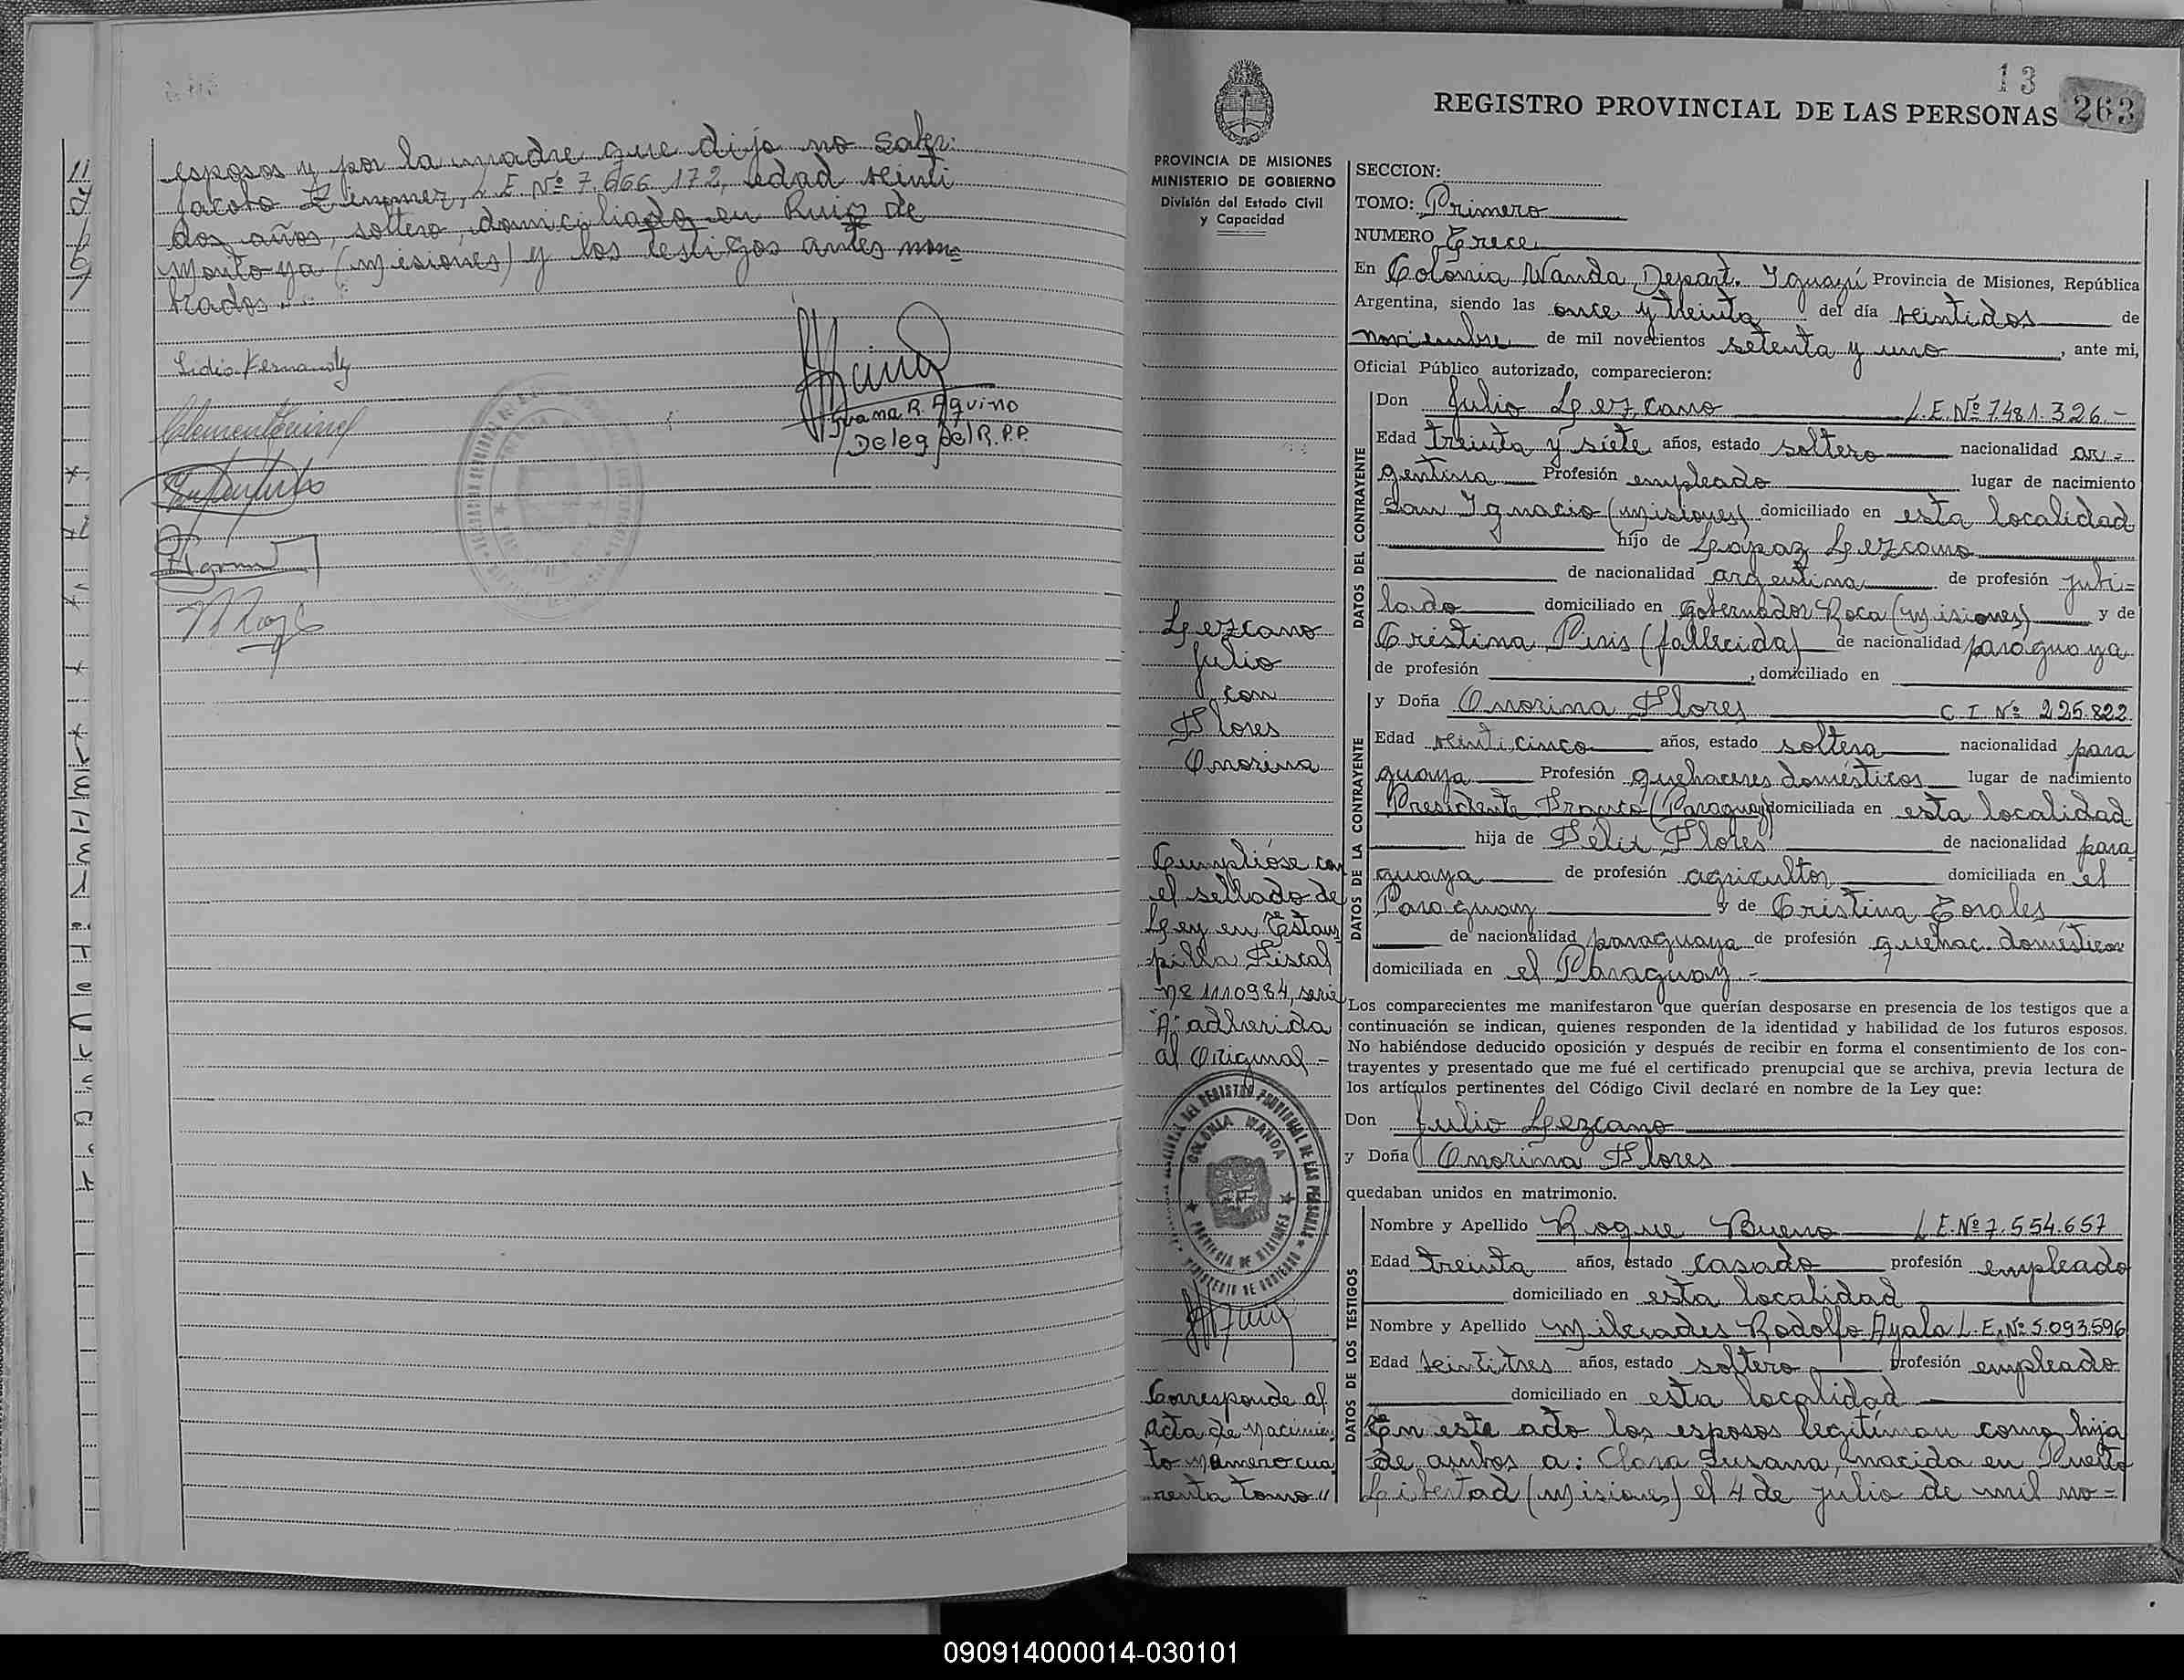 esposos y por la madre que dijo no saber:
Jacobo Zimmer, L.E. Nº 7.666.172, edad veinti
dos años, soltero, domiciliado en Ruiz de
Montoya (Misiones) y los testigos antes nom=
brados..
Lidia Fernandez
Juana R. Aquino
Deleg del R.P.P.
13
263
REGISTRO PROVINCIAL DE LAS PERSONAS
PROVINCIA DE MISIONES
MINISTERIO DE GOBIERNO
División del Estado Civil
y Capacidad
Lezcano
Julio
con
Flores
Omorina
Cumplióse con
el sellado de
Ley en Estam
pilla Fiscal
Nº 1110984, serie
"A" adherida
al Original -
COLONIA WANDA
PROVINCIA DE MISIONES
MINISTERIO DE GOBIERNO
Corresponde al
Acta de Nacimien
to Número cua
renta tomo "
SECCION:
TOMO: Primero
NUMERO Trece
En Colonia Wanda, Depart. Iguazú Provincia de Misiones, República
Argentina, siendo las once y treinta del día veintidos de
noviembre de mil novecientos setenta y uno, ante mi,
Oficial Público autorizado, comparecieron:
DATOS DEL CONTRAYENTE
Don Julio Lezcano L.E. Nº 7481.326.-
Edad treinta y siete años, estado soltero nacionalidad ar-
gentina Profesión empleado lugar de nacimiento
San Ignacio (Misiones) domiciliado en esta localidad
hijo de Lapaz Lezcano
de nacionalidad argentina de profesión jubi=
lado domiciliado en Gobernador Roca (Misiones) y de
Cristina Piris (fallecida) de nacionalidad paraguaya
de profesión , domiciliado en
DATOS DE LA CONTRAYENTE
y Doña Omorina Flores C.I. Nº 225.822
Edad veinticinco años, estado soltera nacionalidad para
guaya Profesión quehaceres domésticos lugar de nacimiento
Presidente Franco (Paraguay) domiciliada en esta localidad
hija de Félix Flores de nacionalidad para
guaya de profesión agricultor domiciliada en el
Paraguay y de Cristina Torales
de nacionalidad paraguaya de profesión quehac. domésticos
domiciliada en el Paraguay.-
Los comparecientes me manifestaron que querían desposarse en presencia de los testigos que a
continuación se indican, quienes responden de la identidad y habilidad de los futuros esposos.
No habiéndose deducido oposición y después de recibir en forma el consentimiento de los con-
trayentes y presentado que me fué el certificado prenupcial que se archiva, previa lectura de
los artículos pertinentes del Código Civil declaré en nombre de la Ley que:
Don Julio Lezcano
y Doña Omorina Flores
quedaban unidos en matrimonio.
DATOS DE LOS TESTIGOS
Nombre y Apellido Roque Bueno L.E. Nº 7.554.657
Edad treinta años, estado casado profesión empleado
domiciliado en esta localidad
Nombre y Apellido Milciades Rodolfo Ayala L.E. Nº 5.093.596
Edad veintitres años, estado soltero profesión empleado
domiciliado en esta localidad
En este acto los esposos legitiman como hija
de ambos a: Clara Susana, nacida en Puerto
Libertad (Misiones) el 4 de julio de mil no=
090914000014-030101